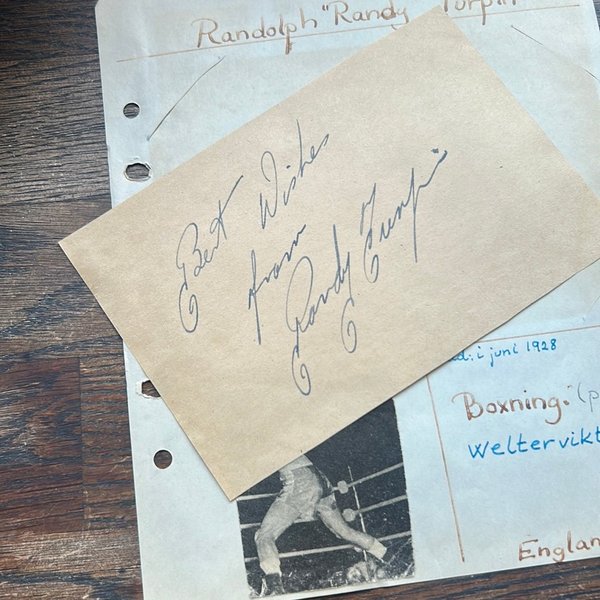 Randolph "Randy Turpin
Best Wishes
from
Randy Turpin
d: i juni 1928
Boxning: (p
Weltervikt
Englan